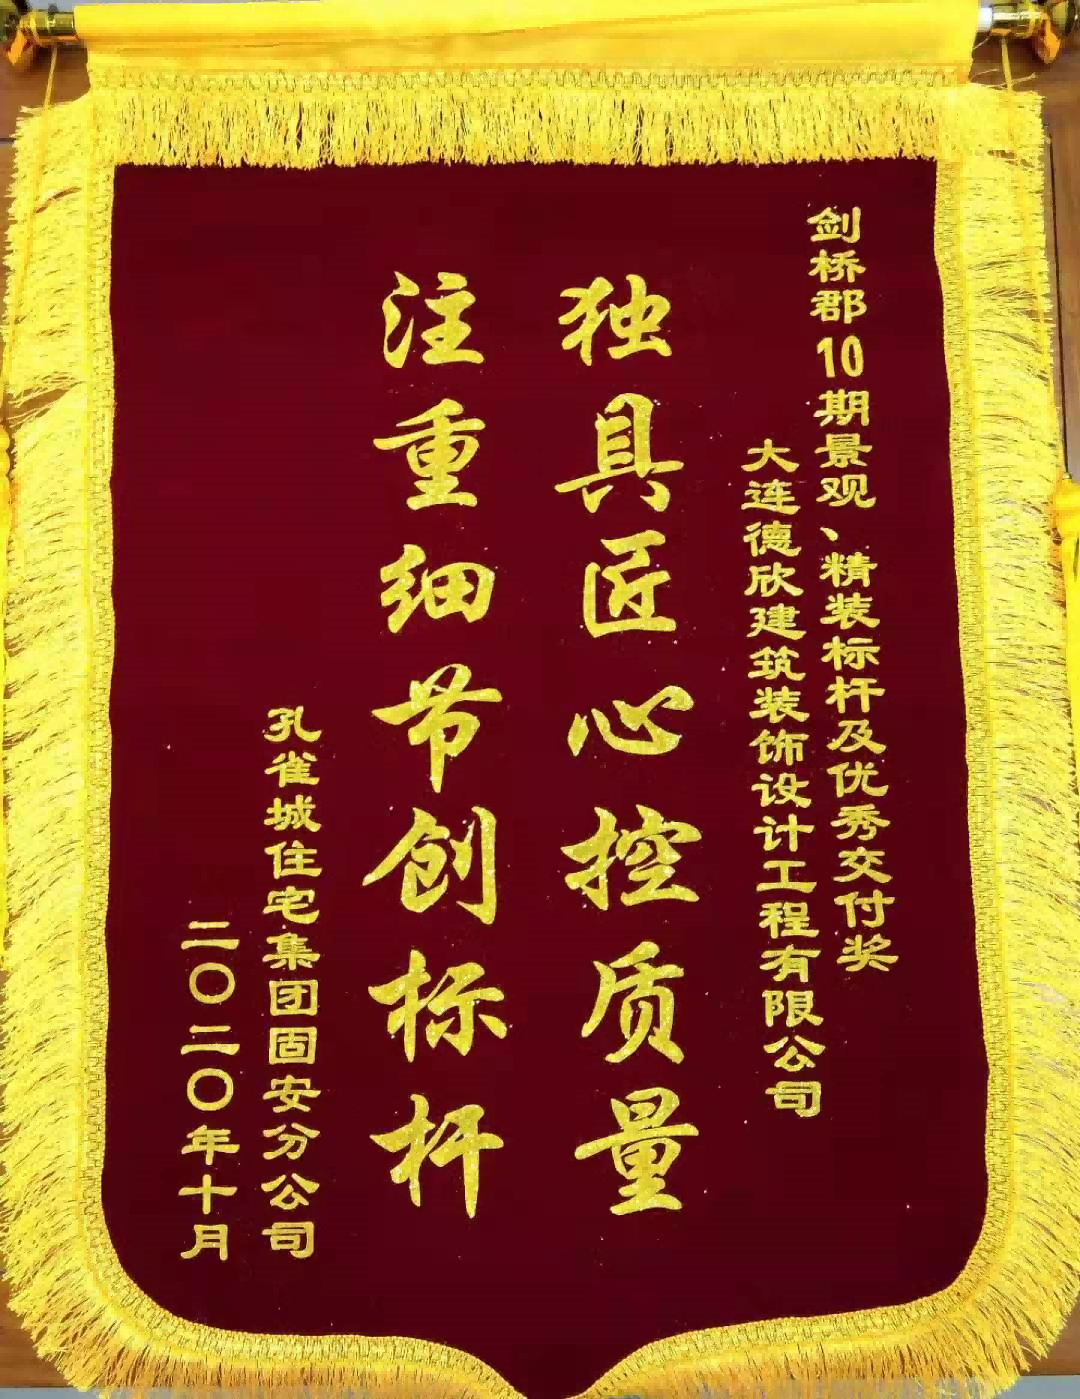 剑桥郡10期景观、精装标杆及优秀交付奖
大连德欣建筑装饰设计工程有限公司
独具匠心控质量
注重细节创标杆
孔雀城住宅集团固安分公司
二〇二〇年十月